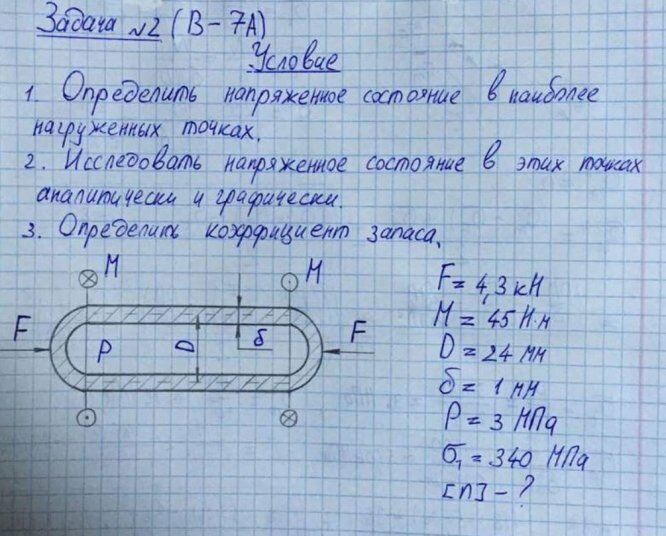 Задача №2 (В-7А)
Условие
1. Определить напряженное состояние в наиболее
нагруженных точках.
2. Исследовать напряженное состояние в этих точках
аналитически и графически.
3. Определить коэффициент запаса.
M
M
F
P
D
δ
F
F = 4,3 кН
M = 45 Н·м
D = 24 мм
δ = 1 мм
P = 3 МПа
σт = 340 МПа
[n] - ?